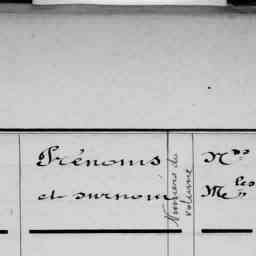 Prénoms
et surnom
Numéros du
volume
Nos
Mles